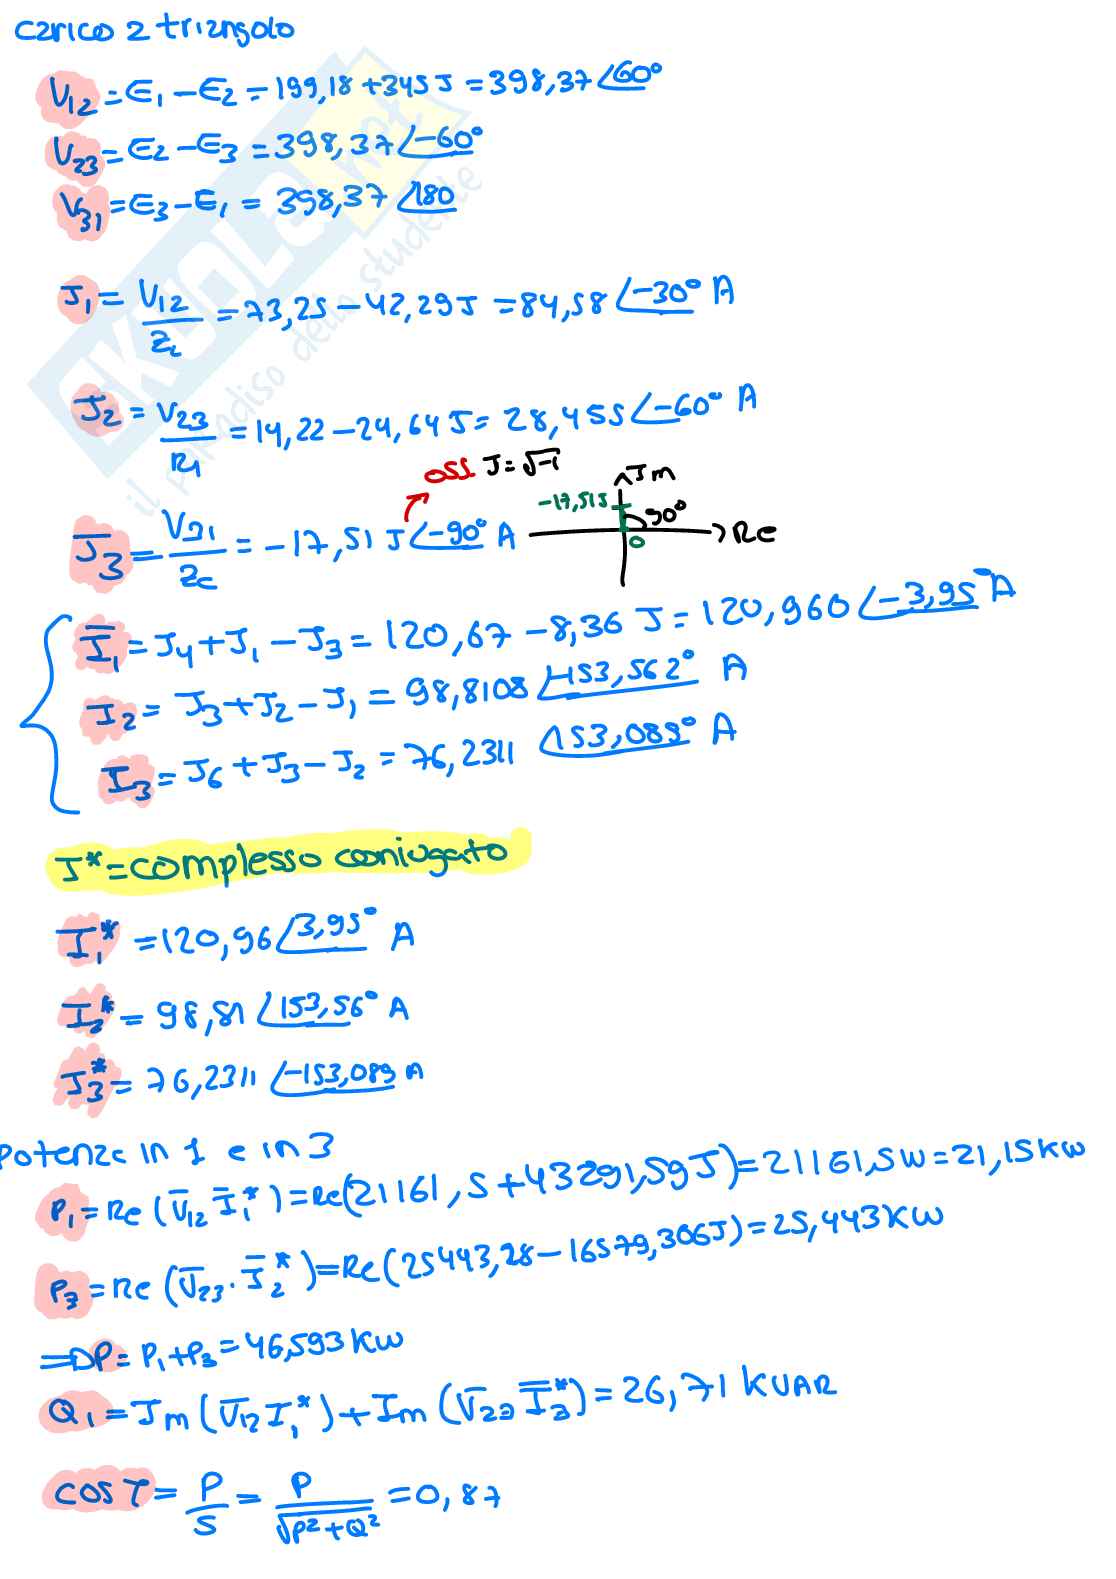 carico a triangolo
V12 = E1 - E2 = 199,18 + 345 J = 398,37 ∠60°
V23 = E2 - E3 = 398,37 ∠-60°
V31 = E3 - E1 = 398,37 ∠180
J1 = V12/ZL = 73,25 - 42,29 J = 84,58 ∠-30° A
J2 = V23/R1 = 14,22 - 24,64 J = 28,455 ∠-60° A
OSS. J = √-1
Jm
-17,51J
90°
Re
0
J3 = V31/Zc = -17,51 J ∠-90° A
I1 = J4 + J1 - J3 = 120,67 - 8,36 J = 120,960 ∠-3,95° A
I2 = J3 + J2 - J1 = 98,8108 ∠-153,562° A
I3 = J6 + J3 - J2 = 76,2311 ∠153,089° A
J* = complesso coniugato
I1* = 120,96 ∠3,95° A
I2* = 98,81 ∠153,56° A
I3* = 76,2311 ∠-153,089 A
Potenza in 1 e in 3
P1 = Re (V12 I1*) = Re(21161,5 + 43291,59 J) = 21161,5 W = 21,15 KW
P3 = Re (V23 · I2*) = Re(25443,28 - 16579,306J) = 25,443 KW
=> P = P1 + P3 = 46,593 KW
Q1 = Im (V12 I1*) + Im (V23 I3*) = 26,71 KVAR
cosτ = P/S = P/√P²+Q² = 0,87
SKUOLA.net
il paradiso dello studente